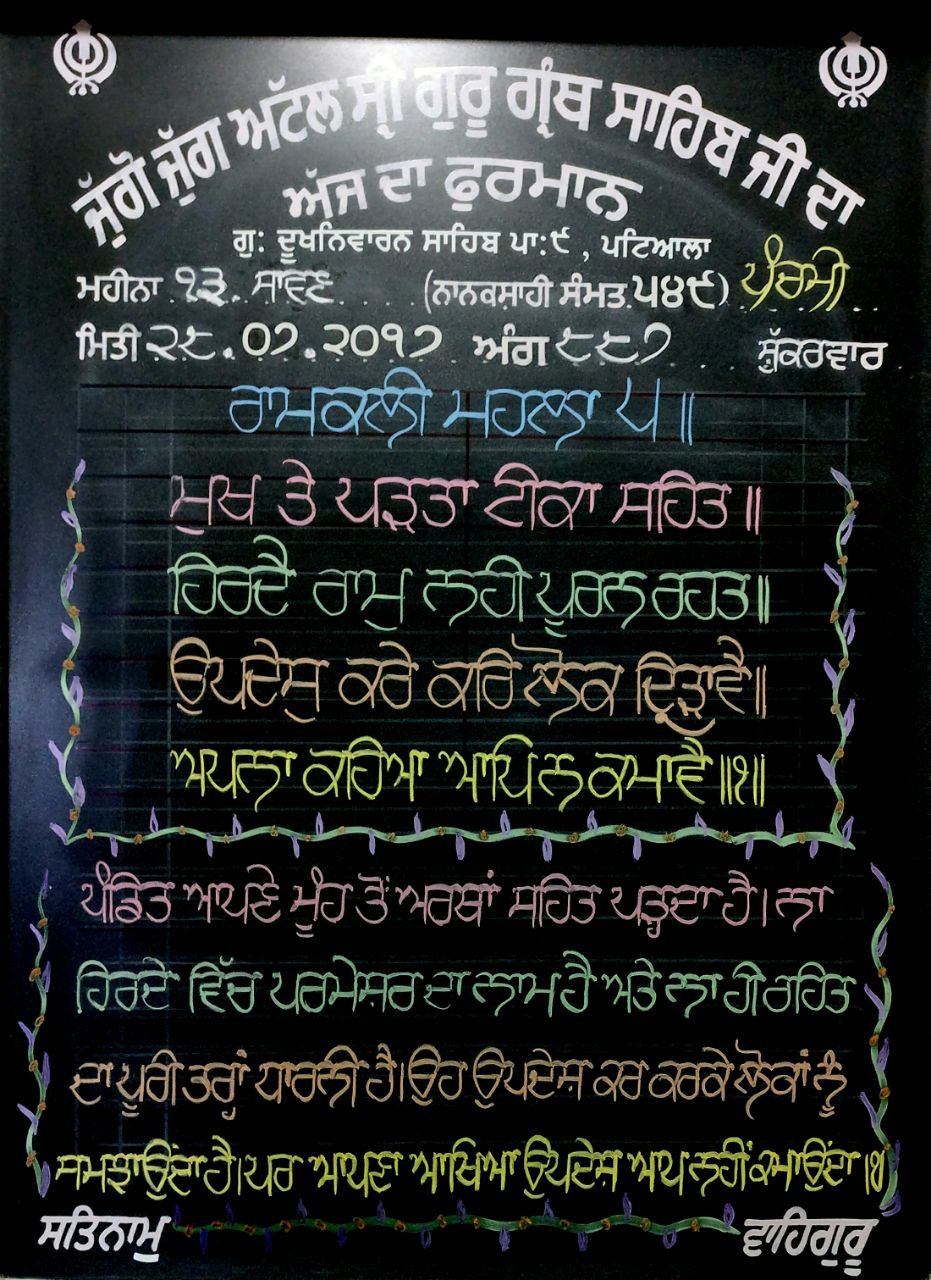 ਜੁੱਗੋ ਜੁੱਗ ਅਟੱਲ ਸ੍ਰੀ ਗੁਰੂ ਗ੍ਰੰਥ ਸਾਹਿਬ ਜੀ ਦਾ
ਅੱਜ ਦਾ ਫੁਰਮਾਨ
ਗੁ: ਦੂਖਨਿਵਾਰਨ ਸਾਹਿਬ ਪਾ:੯ , ਪਟਿਆਲਾ
ਮਹੀਨਾ ੧੩. ਸਾਵਣ (ਨਾਨਕਸ਼ਾਹੀ ਸੰਮਤ ੫੪੯) ਪੰਚਮੀ
ਮਿਤੀ ੨੮.੦੭.੨੦੧੭ ਅੰਗ ੮੮੭ ਸ਼ੁੱਕਰਵਾਰ
ਰਾਮਕਲੀ ਮਹਲਾ ੫॥
ਮੁਖ ਤੇ ਪੜਤਾ ਟੀਕਾ ਸਹਿਤ॥
ਹਿਰਦੈ ਰਾਮੁ ਨਹੀ ਪੂਰਨ ਰਹਤ॥
ਉਪਦੇਸੁ ਕਰੇ ਕਰਿ ਲੋਕ ਦ੍ਰਿੜਾਵੈ॥
ਅਪਨਾ ਕਹਿਆ ਆਪਿ ਨ ਕਮਾਵੈ॥੧॥
ਪੰਡਿਤ ਆਪਣੇ ਮੂੰਹ ਤੋਂ ਅਰਥਾਂ ਸਹਿਤ ਪੜ੍ਹਦਾ ਹੈ। ਨਾ
ਹਿਰਦੇ ਵਿੱਚ ਪਰਮੇਸ਼ਰ ਦਾ ਨਾਮ ਹੈ ਅਤੇ ਨਾ ਹੀ ਰਹਿਤ
ਦਾ ਪੂਰੀ ਤਰ੍ਹਾਂ ਧਾਰਨੀ ਹੈ। ਉਹ ਉਪਦੇਸ਼ ਕਰ ਕਰਕੇ ਲੋਕਾਂ ਨੂੰ
ਸਮਝਾਉਂਦਾ ਹੈ। ਪਰ ਆਪਣਾ ਆਖਿਆ ਉਪਦੇਸ਼ ਆਪ ਨਹੀਂ ਕਮਾਉਂਦਾ।੧।
ਸਤਿਨਾਮੁ ਵਾਹਿਗੁਰੂ